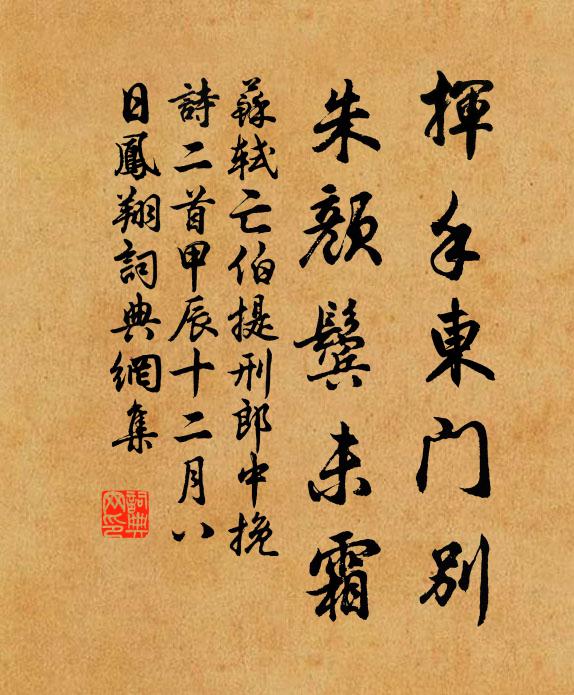 揮手東門別
朱顏鬢未霜
蘇軾亡伯提刑郎中挽
詩二首甲辰十二月八
日鳳翔詞典網集
詞典网印